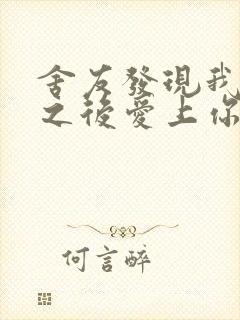 舍友發現我
之後愛上你
何言醉